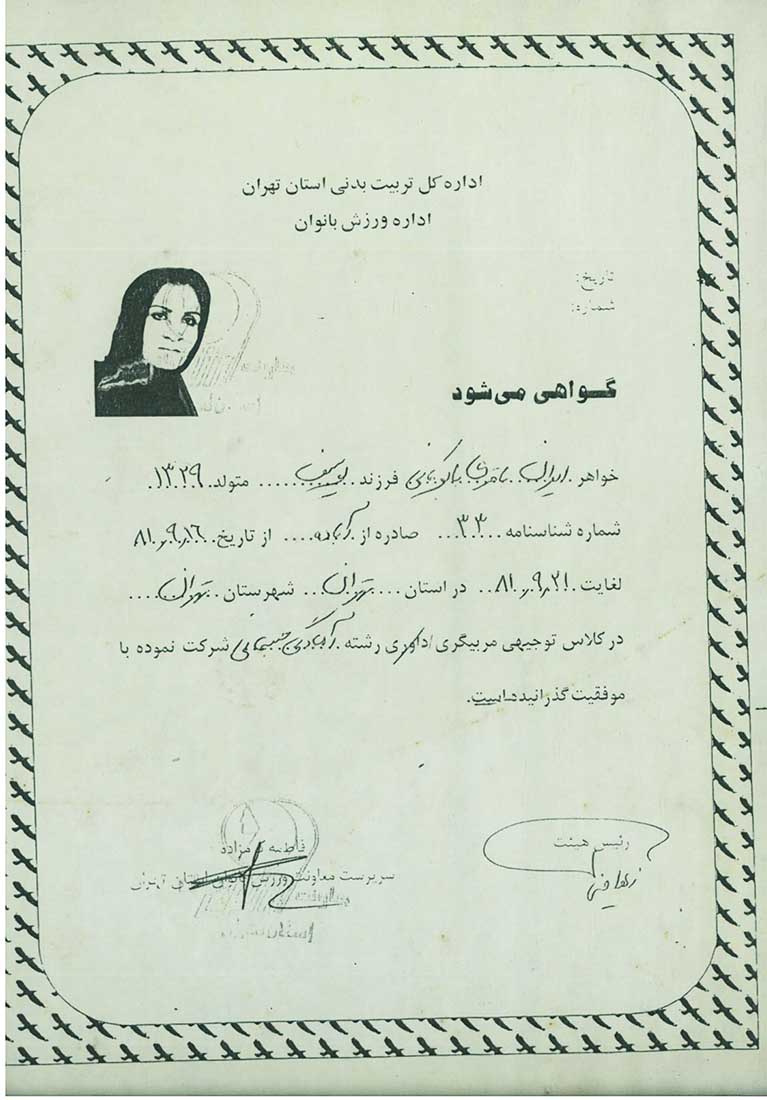 اداره کل تربیت بدنی استان تهران
اداره ورزش بانوان
تاریخ:
شماره:
گواهی می‌شود
خواهر. ایران فرزند. یوسف...... متولد. ۱۳۲۹.
شماره شناسنامه... ۳۳۰... صادره از آباده.... از تاریخ. ۸۱.۹.۱۶
لغایت. ۸۱.۹.۲۱.. در استان.... تهران... شهرستان. تهران....
در کلاس توجیهی مربیگری/داوری رشته آمادگی جسمانی شرکت نموده با
موفقیت گذرانیده است.
رئیس هیئت
فاطمه
سرپرست معاونت ورزش بانوان استان تهران